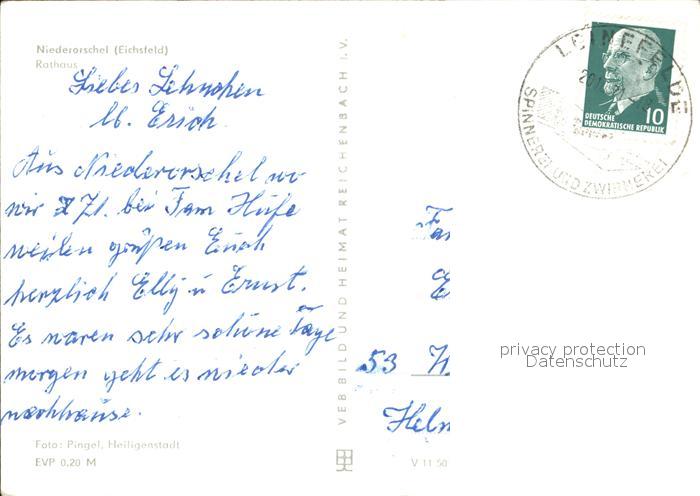 Niederorschel (Eichsfeld)
Rathaus
Liebes Lehnchen
lb. Erich.
Aus Niederorschel wo
wir z. Zt. bei Fam Hüfe
weilen grüßen Euch
herzlich Elly u Ernst.
Es waren sehr schöne Tage
morgen geht es wieder
nachhause.
Foto: Pingel, Heiligenstadt
EVP 0,20 M
VEB BILD UND HEIMAT REICHENBACH I.V.
V 11 50
LEINEFELDE
SPINNEREI UND ZWIRNEREI
10
DEUTSCHE
DEMOKRATISCHE REPUBLIK
Fa
E
53 W
Helm
privacy protection
Datenschutz